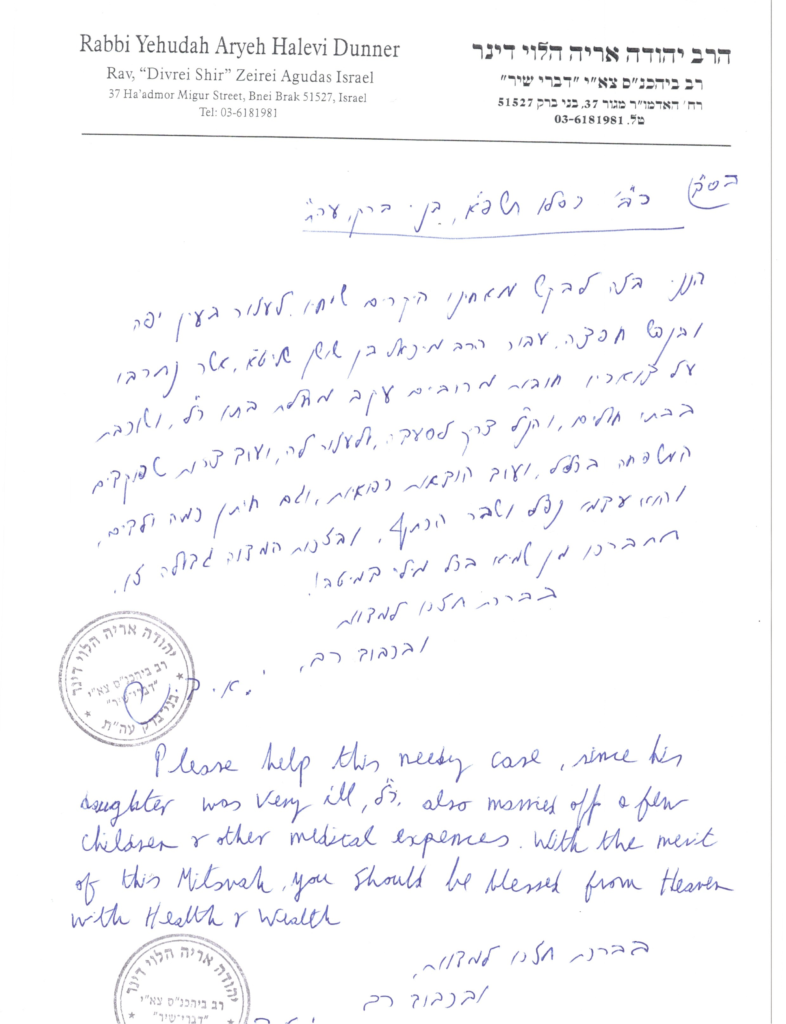 Rabbi Yehudah Aryeh Halevi Dunner
Rav, “Divrei Shir” Zeirei Agudas Israel
37 Ha'admor Migur Street, Bnei Brak 51527, Israel
Tel: 03-6181981
הרב יהודה אריה הלוי דינר
רב ביהכנ"ס צא"י "דברי שיר"
רח' האדמו"ר מגור 37, בני ברק 51527
טל. 03-6181981
בס"ד
כ"ב כסלו תשפ"א, בני ברק, עיה"ת
הנני בזה לבקש מאחינו היקרים שיחיו לעזור בעין יפה
ובנפש חפצה, עבור הרב מיכאל בן שושן שליט"א, אשר נתרבו
על צואריו חובות מרובים עקב מחלת בתו ר"ל, ושוכבת
בבתי חולים, והנ"ל צריך לסעדה, ולעזור לה, ועוד צרות שפוקדים
המשפחה בכלל, ועוד הוצאות רפואיות, וגם חיתן כמה ילדים,
והוא עצמו נפל ושבר הכתף, ובזכות המצוה גדולה זו,
תתברכו מן שמיא בכל מילי דמיטב!
בברכת חזקו למצות
ובכבוד רב,
י. א. ד
יהודה אריה הלוי דינר
רב ביהכנ"ס צא"י
"דברי שיר"
בני ברק עיה"ת
Please help this needy case, since his
daughter was very ill, ר"ל. also married off a few
children & other medical expences. With the merit
of this Mitsvah, you should be blessed from Heaven
with Health & Wealth
בברכת חזקו למצות,
ובכבוד רב
יהודה אריה הלוי דינר
רב ביהכנ"ס צא"י
"דברי שיר"